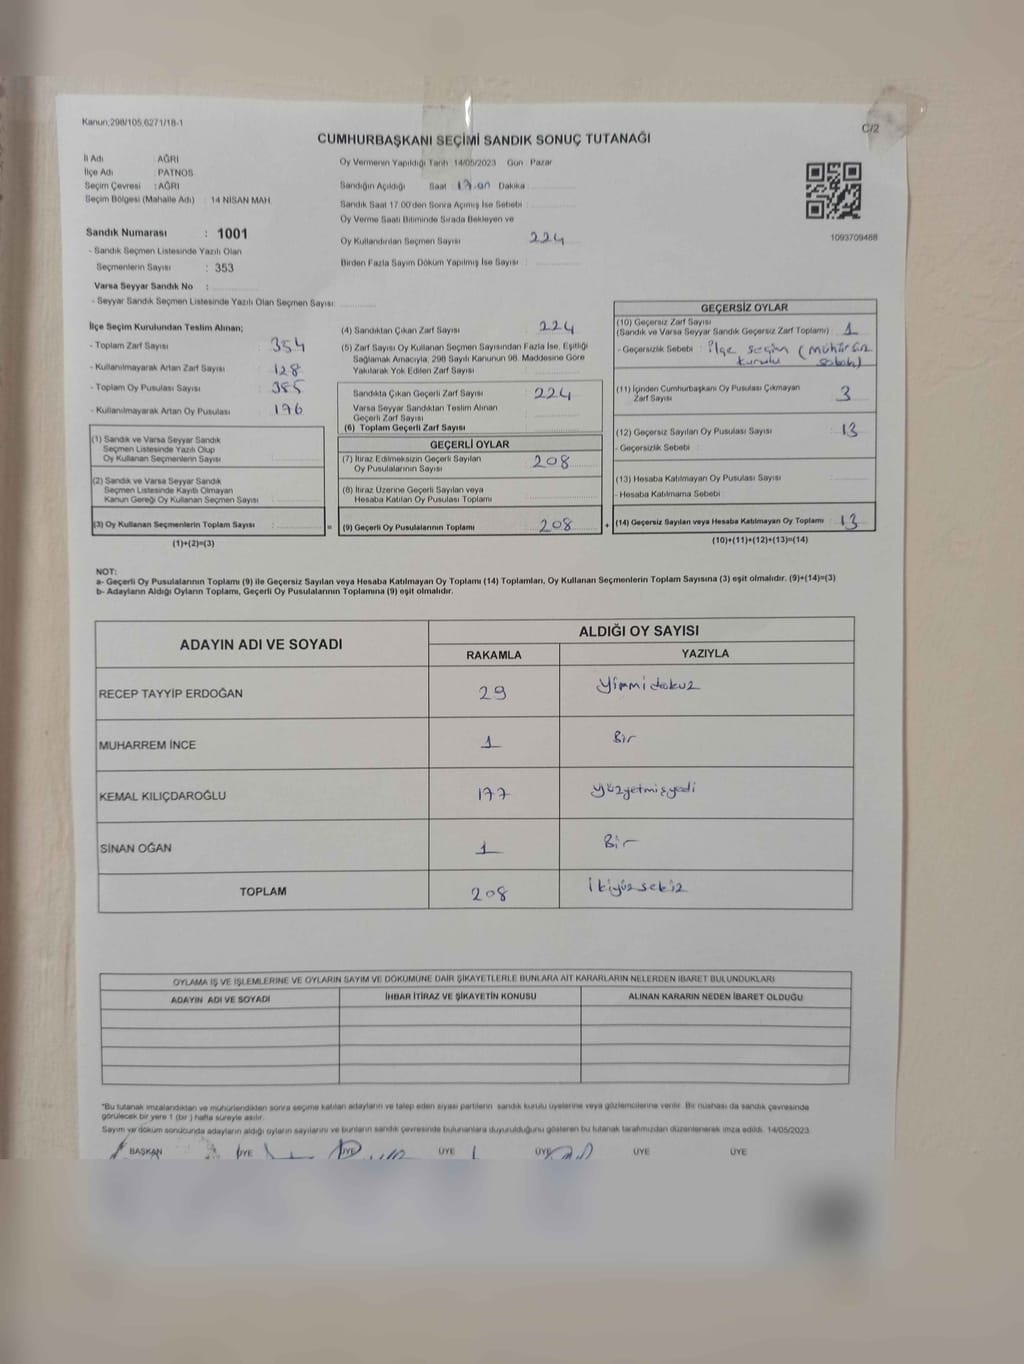 Kanun;298/105,6271/18-1
C/2
CUMHURBAŞKANI SEÇİMİ SANDIK SONUÇ TUTANAĞI
İl Adı : AĞRI
İlçe Adı : PATNOS
Seçim Çevresi : AĞRI
Seçim Bölgesi (Mahalle Adı) : 14 NİSAN MAH.
Sandık Numarası : 1001
- Sandık Seçmen Listesinde Yazılı Olan
Seçmenlerin Sayısı : 353
Varsa Seyyar Sandık No :
- Seyyar Sandık Seçmen Listesinde Yazılı Olan Seçmen Sayısı:
Oy Vermenin Yapıldığı Tarih 14/05/2023 Gün Pazar
Sandığın Açıldığı Saat 17.00 Dakika
Sandık Saat 17:00'den Sonra Açımış İse Sebebi :
Oy Verme Saati Bitiminde Sırada Bekleyen ve
Oy Kullandırılan Seçmen Sayısı : 224
Birden Fazla Sayım Döküm Yapılmış İse Sayısı :
1093709488
İlçe Seçim Kurulundan Teslim Alınan;
- Toplam Zarf Sayısı : 354
- Kullanılmayarak Artan Zarf Sayısı : 128
- Toplam Oy Pusulası Sayısı : 385
- Kullanılmayarak Artan Oy Pusulası : 176
(1) Sandık ve Varsa Seyyar Sandık
Seçmen Listesinde Yazılı Olup
Oy Kullanan Seçmenlerin Sayısı :
(2) Sandık ve Varsa Seyyar Sandık
Seçmen Listesinde Kayıtlı Olmayan
Kanun Gereği Oy Kullanan Seçmen Sayısı :
(3) Oy Kullanan Seçmenlerin Toplam Sayısı : =
(1)+(2)=(3)
(4) Sandıktan Çıkan Zarf Sayısı : 224
(5) Zarf Sayısı Oy Kullanan Seçmen Sayısından Fazla İse, Eşitliği
Sağlamak Amacıyla, 298 Sayılı Kanunun 98. Maddesine Göre
Yakılarak Yok Edilen Zarf Sayısı :
Sandıkta Çıkan Geçerli Zarf Sayısı : 224
Varsa Seyyar Sandıktan Teslim Alınan
Geçerli Zarf Sayısı :
(6) Toplam Geçerli Zarf Sayısı
GEÇERLİ OYLAR
(7) İtiraz Edilmeksizin Geçerli Sayılan
Oy Pusulalarının Sayısı : 208
(8) İtiraz Üzerine Geçerli Sayılan veya
Hesaba Katılan Oy Pusulası Toplamı :
(9) Geçerli Oy Pusulalarının Toplamı : 208 +
GEÇERSİZ OYLAR
(10) Geçersiz Zarf Sayısı
(Sandık ve Varsa Seyyar Sandık Geçersiz Zarf Toplamı) : 1
- Geçersizlik Sebebi : ilçe seçim (mühürsüz
kurulu
(11) İçinden Cumhurbaşkanı Oy Pusulası Çıkmayan
Zarf Sayısı : 3
(12) Geçersiz Sayılan Oy Pusulası Sayısı : 13
- Geçersizlik Sebebi :
(13) Hesaba Katılmayan Oy Pusulası Sayısı :
- Hesaba Katılmama Sebebi :
(14) Geçersiz Sayılan veya Hesaba Katılmayan Oy Toplamı : 13
(10)+(11)+(12)+(13)=(14)
NOT:
a- Geçerli Oy Pusulalarının Toplamı (9) ile Geçersiz Sayılan veya Hesaba Katılmayan Oy Toplamı (14) Toplamları, Oy Kullanan Seçmenlerin Toplam Sayısına (3) eşit olmalıdır. (9)+(14)=(3)
b- Adayların Aldığı Oyların Toplamı, Geçerli Oy Pusulalarının Toplamına (9) eşit olmalıdır.
ADAYIN ADI VE SOYADI
ALDIĞI OY SAYISI
RAKAMLA YAZIYLA
RECEP TAYYİP ERDOĞAN 29 yirmidokuz
MUHARREM İNCE 1 Bir
KEMAL KILIÇDAROĞLU 177 yüzyetmişyedi
SİNAN OĞAN 1 Bir
TOPLAM 208 ikiyüzsekiz
OYLAMA İŞ VE İŞLEMLERİNE VE OYLARIN SAYIM VE DÖKÜMÜNE DAİR ŞİKAYETLERLE BUNLARA AİT KARARLARIN NELERDEN İBARET BULUNDUKLARI
ADAYIN ADI VE SOYADI İHBAR İTİRAZ VE ŞİKAYETİN KONUSU ALINAN KARARIN NEDEN İBARET OLDUĞU
*Bu tutanak imzalandıktan ve mühürlendikten sonra seçime katılan adayların ve talep eden siyasi partilerin sandık kurulu üyelerine veya gözlemcilerine verilir. Bir nüshası da sandık çevresinde
görülecek bir yere 1 (bir ) hafta süreyle asılır.
Sayım ve döküm sonucunda adayların aldığı oyların sayılarını ve bunların sandık çevresinde bulunanlara duyurulduğunu gösteren bu tutanak tarafımızdan düzenlenerek imza edildi. 14/05/2023
BAŞKAN ÜYE ÜYE ÜYE ÜYE ÜYE ÜYE